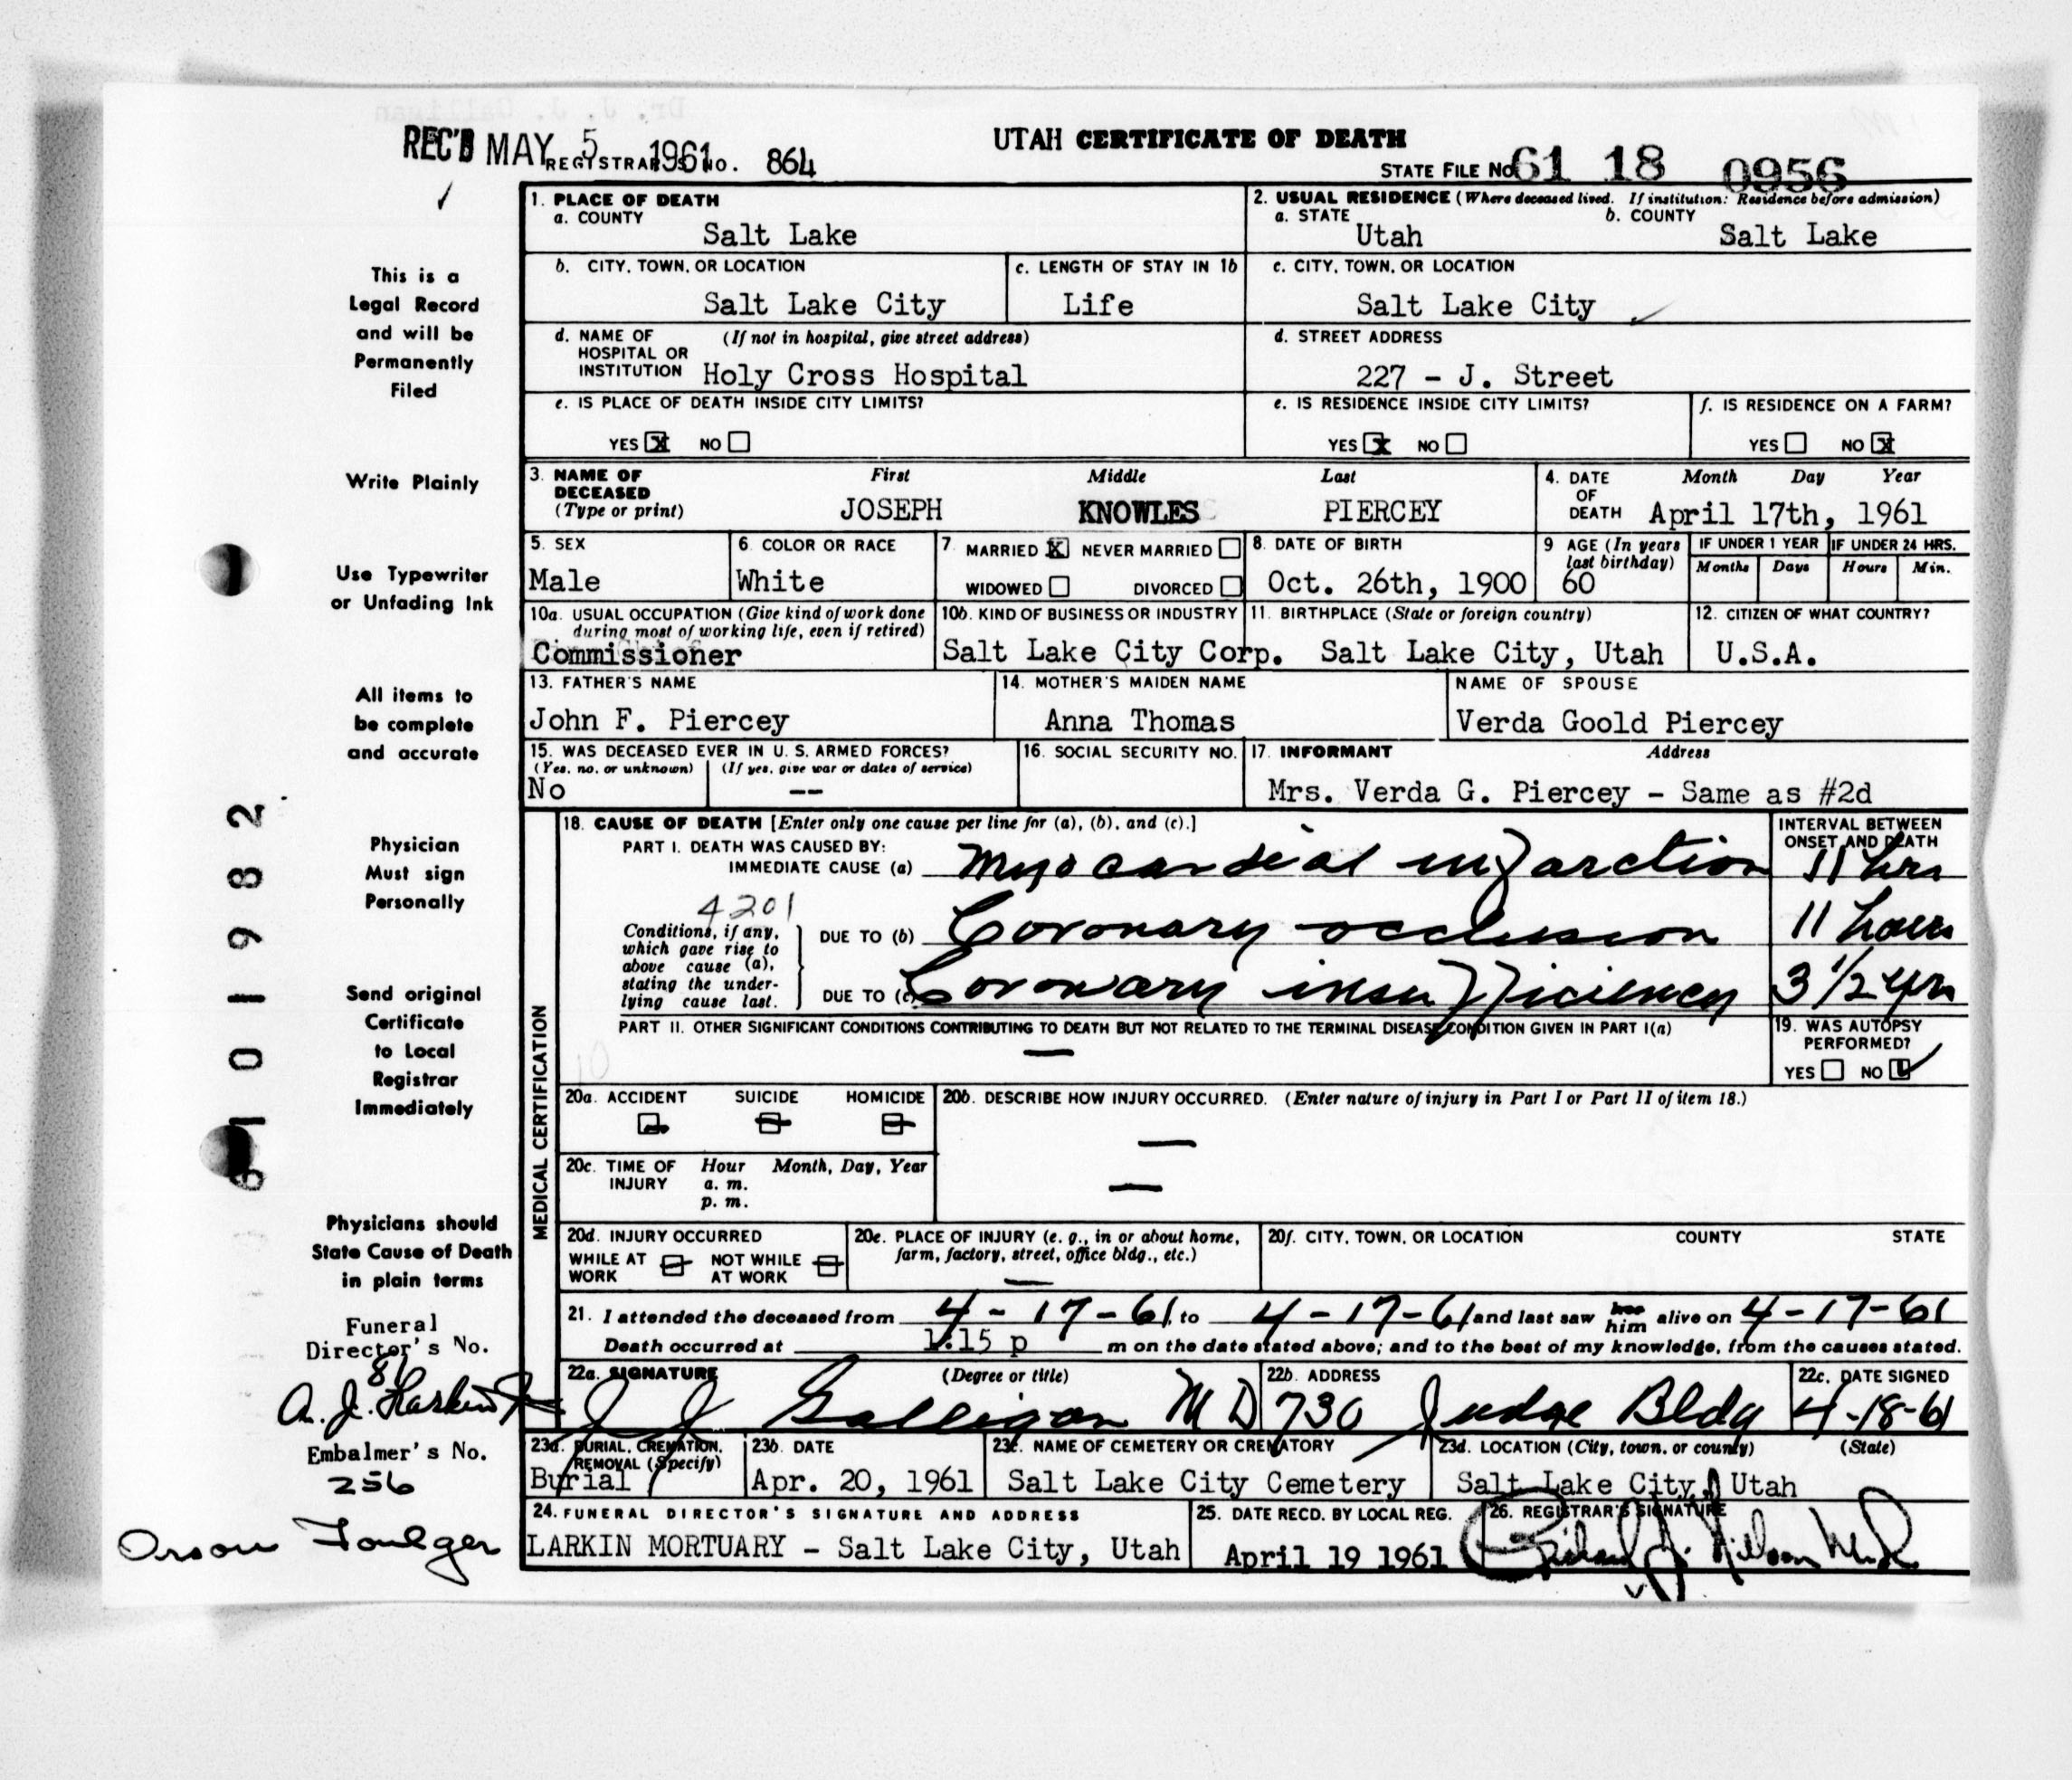 REC'D MAY 5 1961
REGISTRAR'S NO. 864
UTAH CERTIFICATE OF DEATH
STATE FILE NO 61 18 0956
1. PLACE OF DEATH
a. COUNTY
Salt Lake
2. USUAL RESIDENCE (Where deceased lived. If institution: Residence before admission)
a. STATE b. COUNTY
Utah Salt Lake
b. CITY, TOWN, OR LOCATION
Salt Lake City
c. LENGTH OF STAY IN 1b
Life
c. CITY, TOWN, OR LOCATION
Salt Lake City
d. NAME OF (If not in hospital, give street address)
HOSPITAL OR
INSTITUTION Holy Cross Hospital
d. STREET ADDRESS
227 - J. Street
e. IS PLACE OF DEATH INSIDE CITY LIMITS?
YES X NO
e. IS RESIDENCE INSIDE CITY LIMITS?
YES X NO
f. IS RESIDENCE ON A FARM?
YES NO X
3. NAME OF DECEASED (Type or print)
First Middle Last
JOSEPH KNOWLES PIERCEY
4. DATE OF DEATH
Month Day Year
April 17th, 1961
5. SEX
Male
6. COLOR OR RACE
White
7. MARRIED X NEVER MARRIED
WIDOWED DIVORCED
8. DATE OF BIRTH
Oct. 26th, 1900
9 AGE (In years last birthday)
60
IF UNDER 1 YEAR
Months Days
IF UNDER 24 HRS.
Hours Min.
10a. USUAL OCCUPATION (Give kind of work done
during most of working life, even if retired)
Commissioner
10b. KIND OF BUSINESS OR INDUSTRY
Salt Lake City Corp.
11. BIRTHPLACE (State or foreign country)
Salt Lake City, Utah
12. CITIZEN OF WHAT COUNTRY?
U.S.A.
13. FATHER'S NAME
John F. Piercey
14. MOTHER'S MAIDEN NAME
Anna Thomas
NAME OF SPOUSE
Verda Goold Piercey
15. WAS DECEASED EVER IN U. S. ARMED FORCES?
(Yes, no, or unknown) (If yes, give war or dates of service)
No --
16. SOCIAL SECURITY NO.
17. INFORMANT Address
Mrs. Verda G. Piercey - Same as #2d
MEDICAL CERTIFICATION
18. CAUSE OF DEATH [Enter only one cause per line for (a), (b), and (c).]
INTERVAL BETWEEN
ONSET AND DEATH
PART I. DEATH WAS CAUSED BY:
IMMEDIATE CAUSE (a) Myocardial infarction 11 hrs
4201
Conditions, if any,
which gave rise to
above cause (a),
stating the under-
lying cause last.
DUE TO (b) Coronary occlusion 11 hours
DUE TO (c) Coronary insufficiency 3 1/2 yrs
PART II. OTHER SIGNIFICANT CONDITIONS CONTRIBUTING TO DEATH BUT NOT RELATED TO THE TERMINAL DISEASE CONDITION GIVEN IN PART I(a)
—
19. WAS AUTOPSY
PERFORMED?
YES NO ✓
20a. ACCIDENT SUICIDE HOMICIDE
20b. DESCRIBE HOW INJURY OCCURRED. (Enter nature of injury in Part I or Part II of item 18.)
—
20c. TIME OF INJURY
Hour Month, Day, Year
a. m.
p. m.
—
20d. INJURY OCCURRED
WHILE AT WORK NOT WHILE AT WORK
20e. PLACE OF INJURY (e. g., in or about home,
farm, factory, street, office bldg., etc.)
—
20f. CITY, TOWN, OR LOCATION COUNTY STATE
21. I attended the deceased from 4-17-61, to 4-17-61 and last saw her him alive on 4-17-61
Death occurred at 1:15 p m on the date stated above; and to the best of my knowledge, from the causes stated.
22a. SIGNATURE (Degree or title)
J J Galligan M D
22b. ADDRESS
730 Judge Bldg
22c. DATE SIGNED
4-18-61
23a. BURIAL, CREMATION,
REMOVAL (Specify)
Burial
23b. DATE
Apr. 20, 1961
23c. NAME OF CEMETERY OR CREMATORY
Salt Lake City Cemetery
23d. LOCATION (City, town, or county) (State)
Salt Lake City, Utah
24. FUNERAL DIRECTOR'S SIGNATURE AND ADDRESS
LARKIN MORTUARY - Salt Lake City, Utah
25. DATE RECD. BY LOCAL REG.
April 19 1961
26. REGISTRAR'S SIGNATURE
This is a
Legal Record
and will be
Permanently
Filed
Write Plainly
Use Typewriter
or Unfading Ink
All items to
be complete
and accurate
Physician
Must sign
Personally
Send original
Certificate
to Local
Registrar
Immediately
Physicians should
State Cause of Death
in plain terms
Funeral
Director's No.
81
A. J. Larkin Jr
Embalmer's No.
256
Orson Foulger
6101982